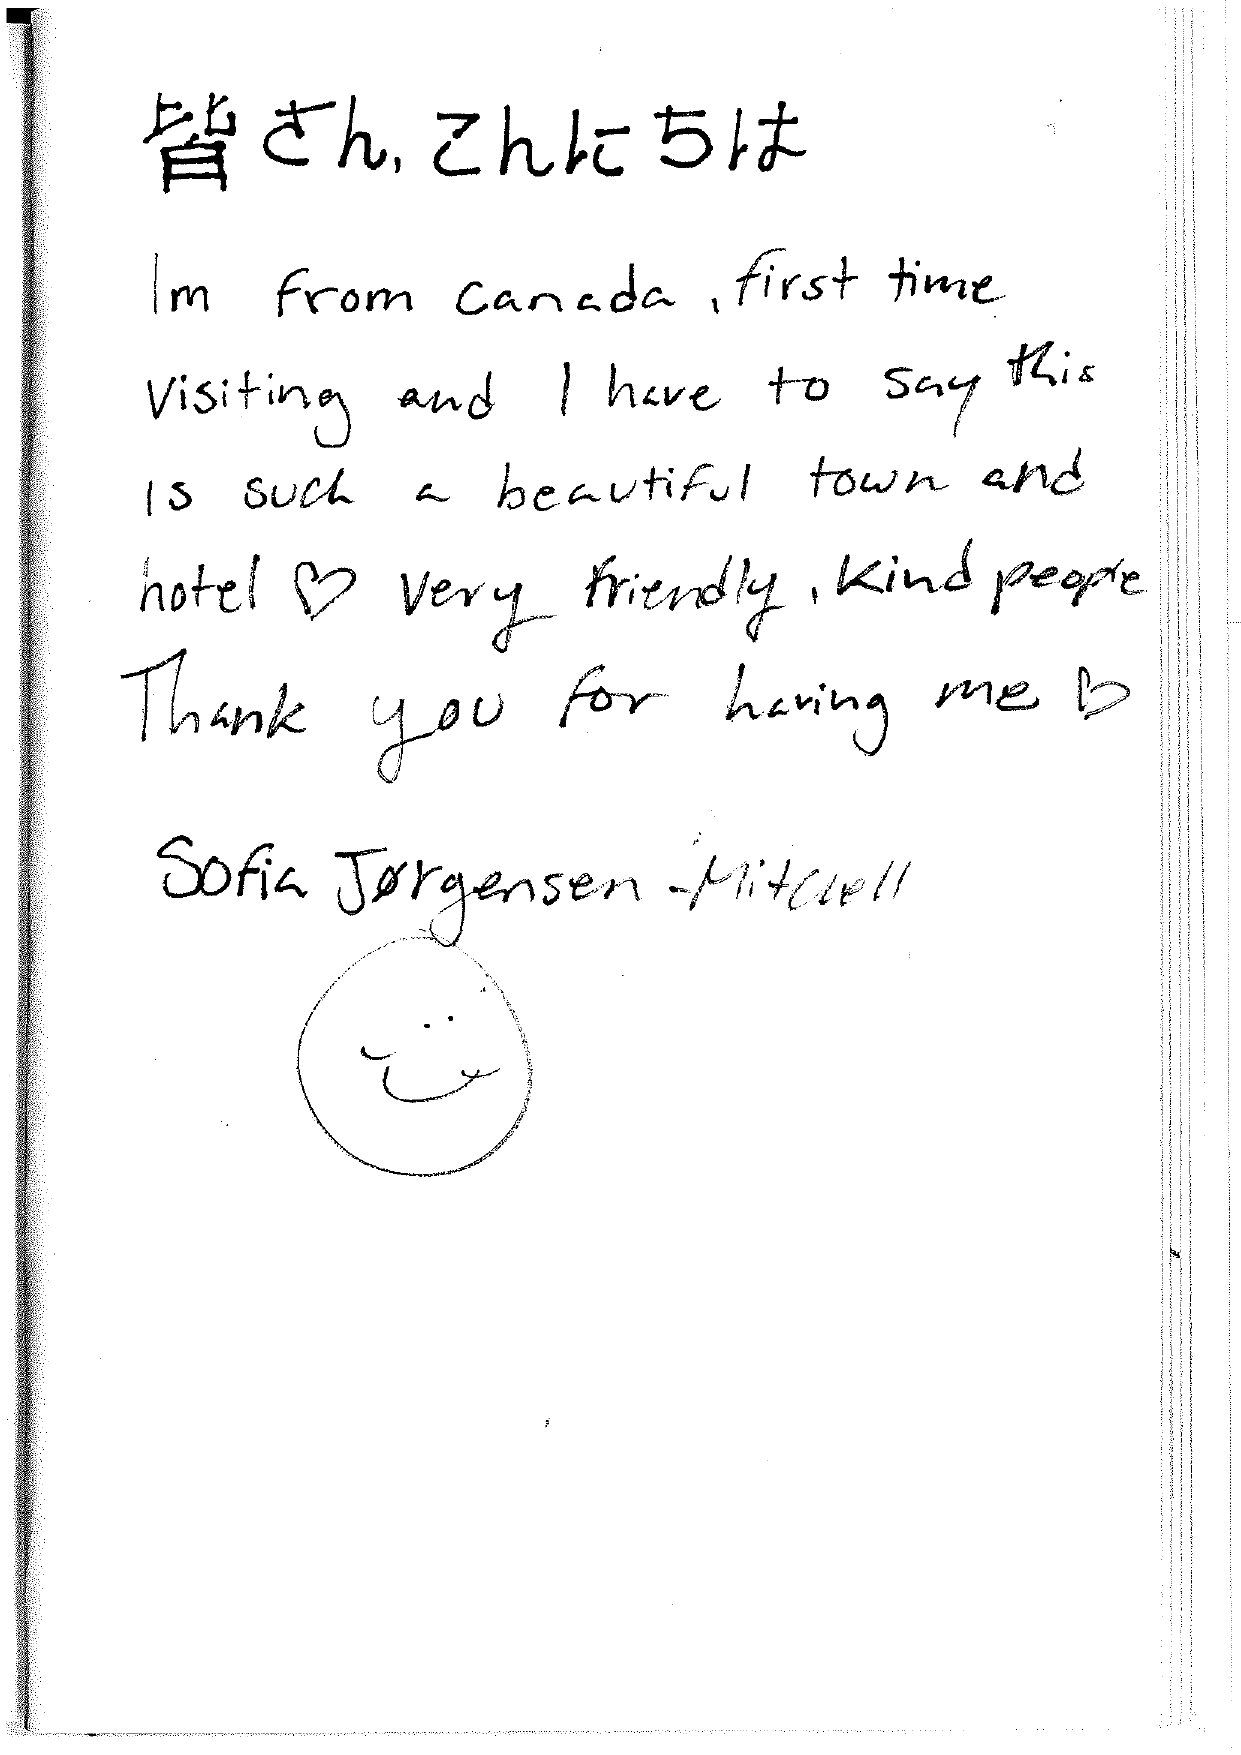 皆さん、こんにちは
Im from Canada, first time
visiting and I have to say this
is such a beautiful town and
hotel ♡ Very friendly, kind people
Thank you for having me ♡
Sofia Jørgensen-Mitchell